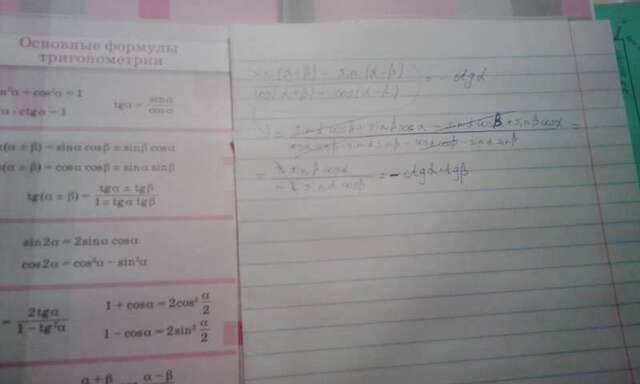 Основные формулы
тригонометрии
sin²α + cos²α = 1
tgα = sinα/cosα
α · ctgα = 1
(α ± β) = sinα cosβ ± sinβ cosα
(α ± β) = cosα cosβ ∓ sinα sinβ
tg(α ± β) = (tgα ± tgβ)/(1 ∓ tgα tgβ)
sin2α = 2sinα cosα
cos2α = cos²α − sin²α
= 2tgα/(1 − tg²α)
1 + cosα = 2cos² α/2
1 − cosα = 2sin² α/2
α + β α − β
sin(α+β) − sin(α−β)
cos(α+β) − cos(α−β)
= −ctgα
sinα cosβ + sinβ cosα − sinα cosβ + sinβ cosα =
cosα cosβ − sinα sinβ − cosα cosβ − sinα sinβ
= 2 sinβ cosα
−2 sinα cosβ
= − ctgα · tgβ